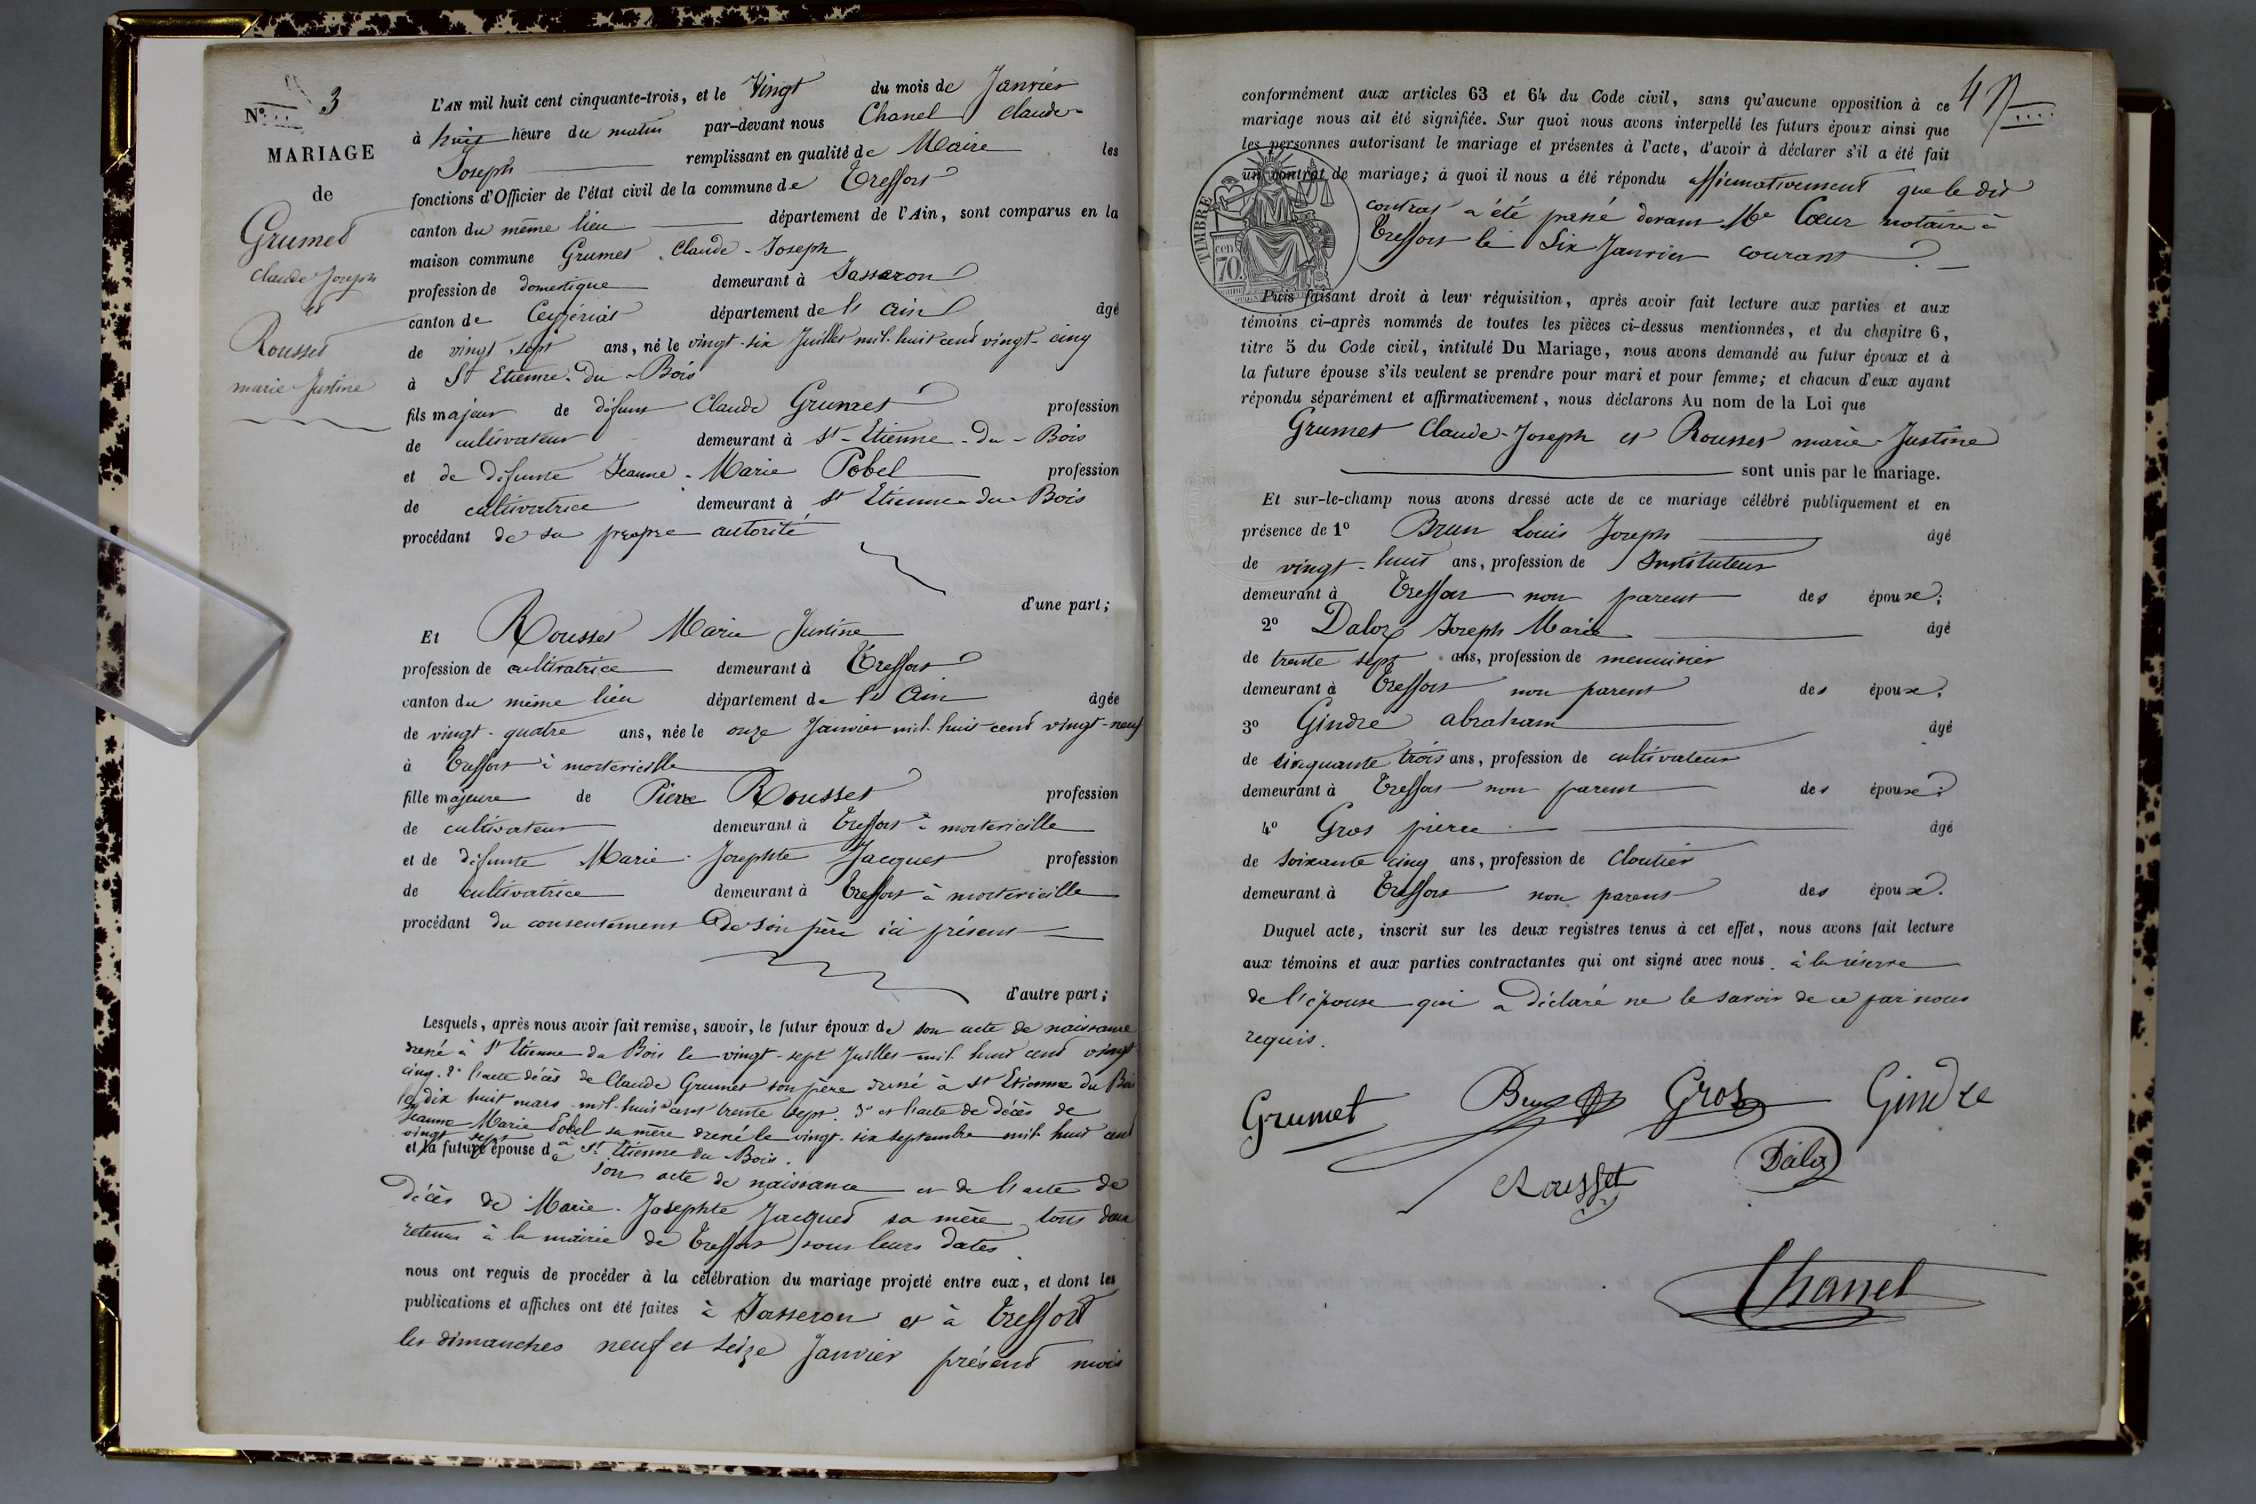 Nº 3
MARIAGE
de
Grumet
Claude Joseph
et
Rousset
marie Justine
L'AN mil huit cent cinquante-trois, et le Vingt du mois de Janvier
à huit heure du matin par-devant nous Chanel Claude
Joseph remplissant en qualité de Maire les
fonctions d'Officier de l'état civil de la commune de Treffort
canton du même lieu département de l'Ain, sont comparus en la
maison commune Grumet Claude-Joseph
profession de domestique demeurant à Jasseron
canton de Ceyzériat département de l'Ain âgé
de vingt-sept ans, né le vingt-six Juillet mil-huit cent vingt-cinq
à St Etienne-du-Bois
fils majeur de défunt Claude Grumet profession
de cultivateur demeurant à St-Etienne-du-Bois
et de défunte Jeanne-Marie Pobel profession
de cultivatrice demeurant à St Etienne-du-Bois
procédant de sa propre autorité
d'une part;
Et Rousset Marie Justine
profession de cultivatrice demeurant à Treffort
canton du même lieu département de l'Ain âgée
de vingt-quatre ans, née le onze Janvier mil-huit cent vingt-neuf
à Treffort à mortevieille
fille majeure de Pierre Rousset profession
de cultivateur demeurant à Treffort à mortevieille
et de défunte Marie-Josephte Jacquet profession
de cultivatrice demeurant à Treffort à mortevieille
procédant du consentement de son père ici présent
d'autre part;
Lesquels, après nous avoir fait remise, savoir, le futur époux de son acte de naissance
dressé à St Etienne du Bois le vingt-sept Juillet mil-huit cent vingt
cinq. 2° l'acte décès de Claude Grumet son père dressé à St Etienne du Bois
le dix huit mars mil-huit cent trente sept. 3° et l'acte de décès de
Jeanne Marie Pobel sa mère dressé le vingt-six septembre mil-huit cent
vingt sept à St Etienne du Bois.
et la future épouse de son acte de naissance et de l'acte de
décès de Marie-Josephte Jacquet sa mère tous deux
retenus à la mairie de Treffort sous leurs dates.
nous ont requis de procéder à la célébration du mariage projeté entre eux, et dont les
publications et affiches ont été faites à Jasseron et à Treffort
les dimanches neuf et seize Janvier présent mois
4
conformément aux articles 63 et 64 du Code civil, sans qu'aucune opposition à ce
mariage nous ait été signifiée. Sur quoi nous avons interpellé les futurs époux ainsi que
les personnes autorisant le mariage et présentes à l'acte, d'avoir à déclarer s'il a été fait
un contrat de mariage; à quoi il nous a été répondu affirmativement que le dit
contrat a été passé devant Me Cœur notaire à
Treffort le Six Janvier courant
TIMBRE
cen
70.
Puis faisant droit à leur réquisition, après avoir fait lecture aux parties et aux
témoins ci-après nommés de toutes les pièces ci-dessus mentionnées, et du chapitre 6,
titre 5 du Code civil, intitulé Du Mariage, nous avons demandé au futur époux et à
la future épouse s'ils veulent se prendre pour mari et pour femme; et chacun d'eux ayant
répondu séparément et affirmativement, nous déclarons Au nom de la Loi que
Grumet Claude-Joseph et Rousset marie-Justine
sont unis par le mariage.
Et sur-le-champ nous avons dressé acte de ce mariage célébré publiquement et en
présence de 1º Brun Louis Joseph âgé
de vingt-huit ans, profession de Instituteur
demeurant à Treffort non parent des époux;
2º Daloz Joseph Marie âgé
de trente sept ans, profession de menuisier
demeurant à Treffort non parent des époux;
3º Gindre abraham âgé
de cinquante trois ans, profession de cultivateur
demeurant à Treffort non parent des époux;
4º Gros pierre âgé
de soixante cinq ans, profession de Cloutier
demeurant à Treffort non parent des époux.
Duquel acte, inscrit sur les deux registres tenus à cet effet, nous avons fait lecture
aux témoins et aux parties contractantes qui ont signé avec nous à la réserve
de l'épouse qui a déclaré ne le savoir de ce par nous
requis.
Grumet Brun Gros Gindre
Rousset Daloz
Chanel